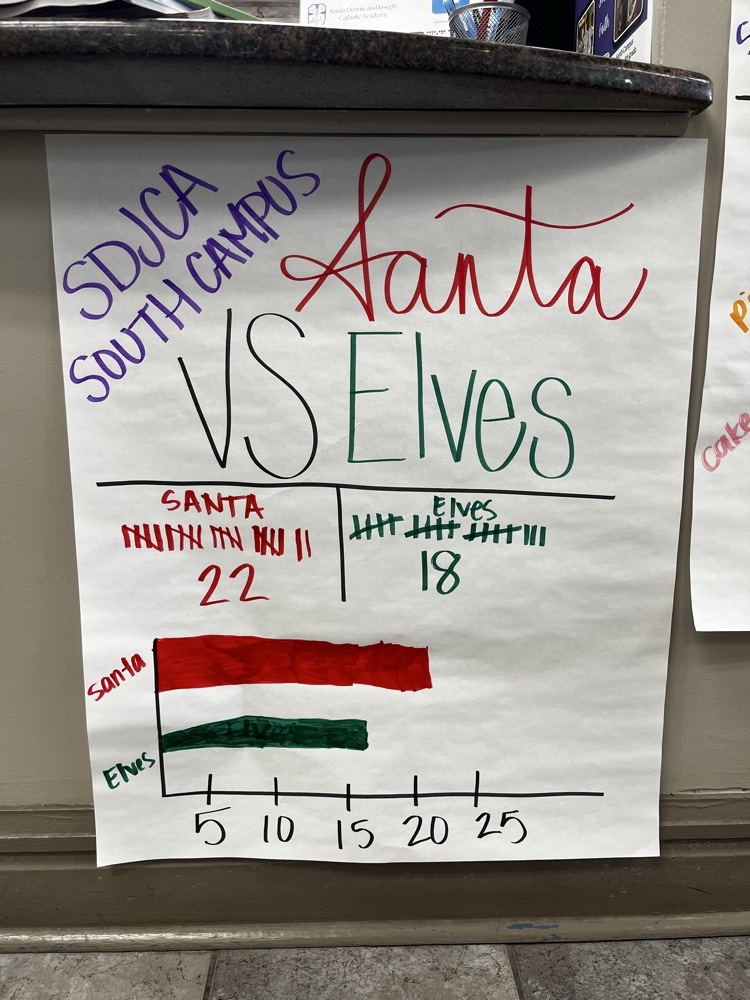 Saints Dennis and Joseph
Catholic Academy
Faith
SDJCA
SOUTH CAMPUS
Santa
VS Elves
SANTA
22
Elves
18
Santa
Elves
5 10 15 20 25
cake